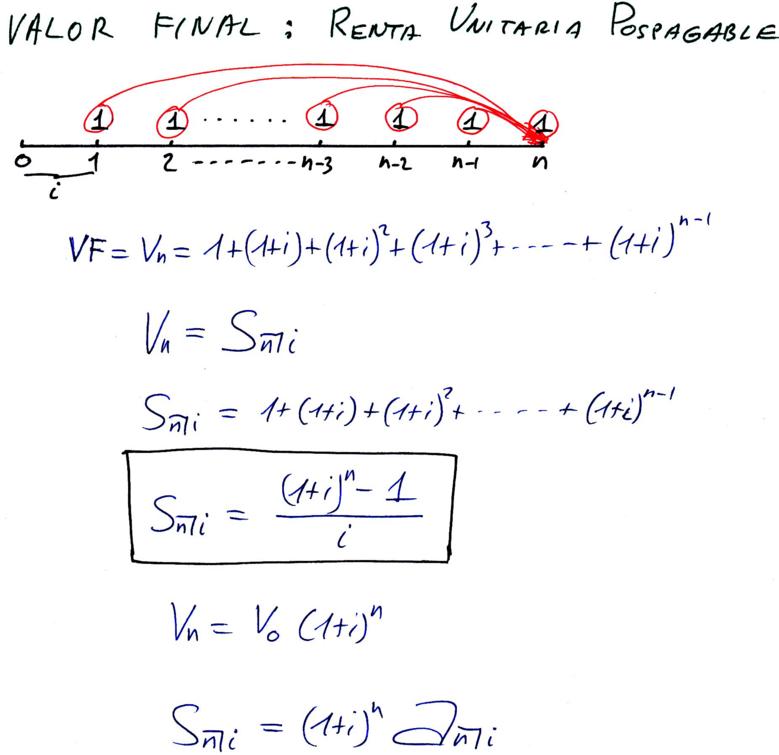 VALOR FINAL : RENTA UNITARIA POSPAGABLE
1 1 ....... 1 1 1 1
0 1 2 -------- n-3 n-2 n-1 n
i
VF = Vn = 1+(1+i)+(1+i)²+(1+i)³+-----+(1+i)ⁿ⁻¹
Vn = Sn̅|i
Sn̅|i = 1+(1+i)+(1+i)²+-----+(1+i)ⁿ⁻¹
Sn̅|i = ((1+i)ⁿ - 1)/i
Vn = V₀ (1+i)ⁿ
Sn̅|i = (1+i)ⁿ an̅|i